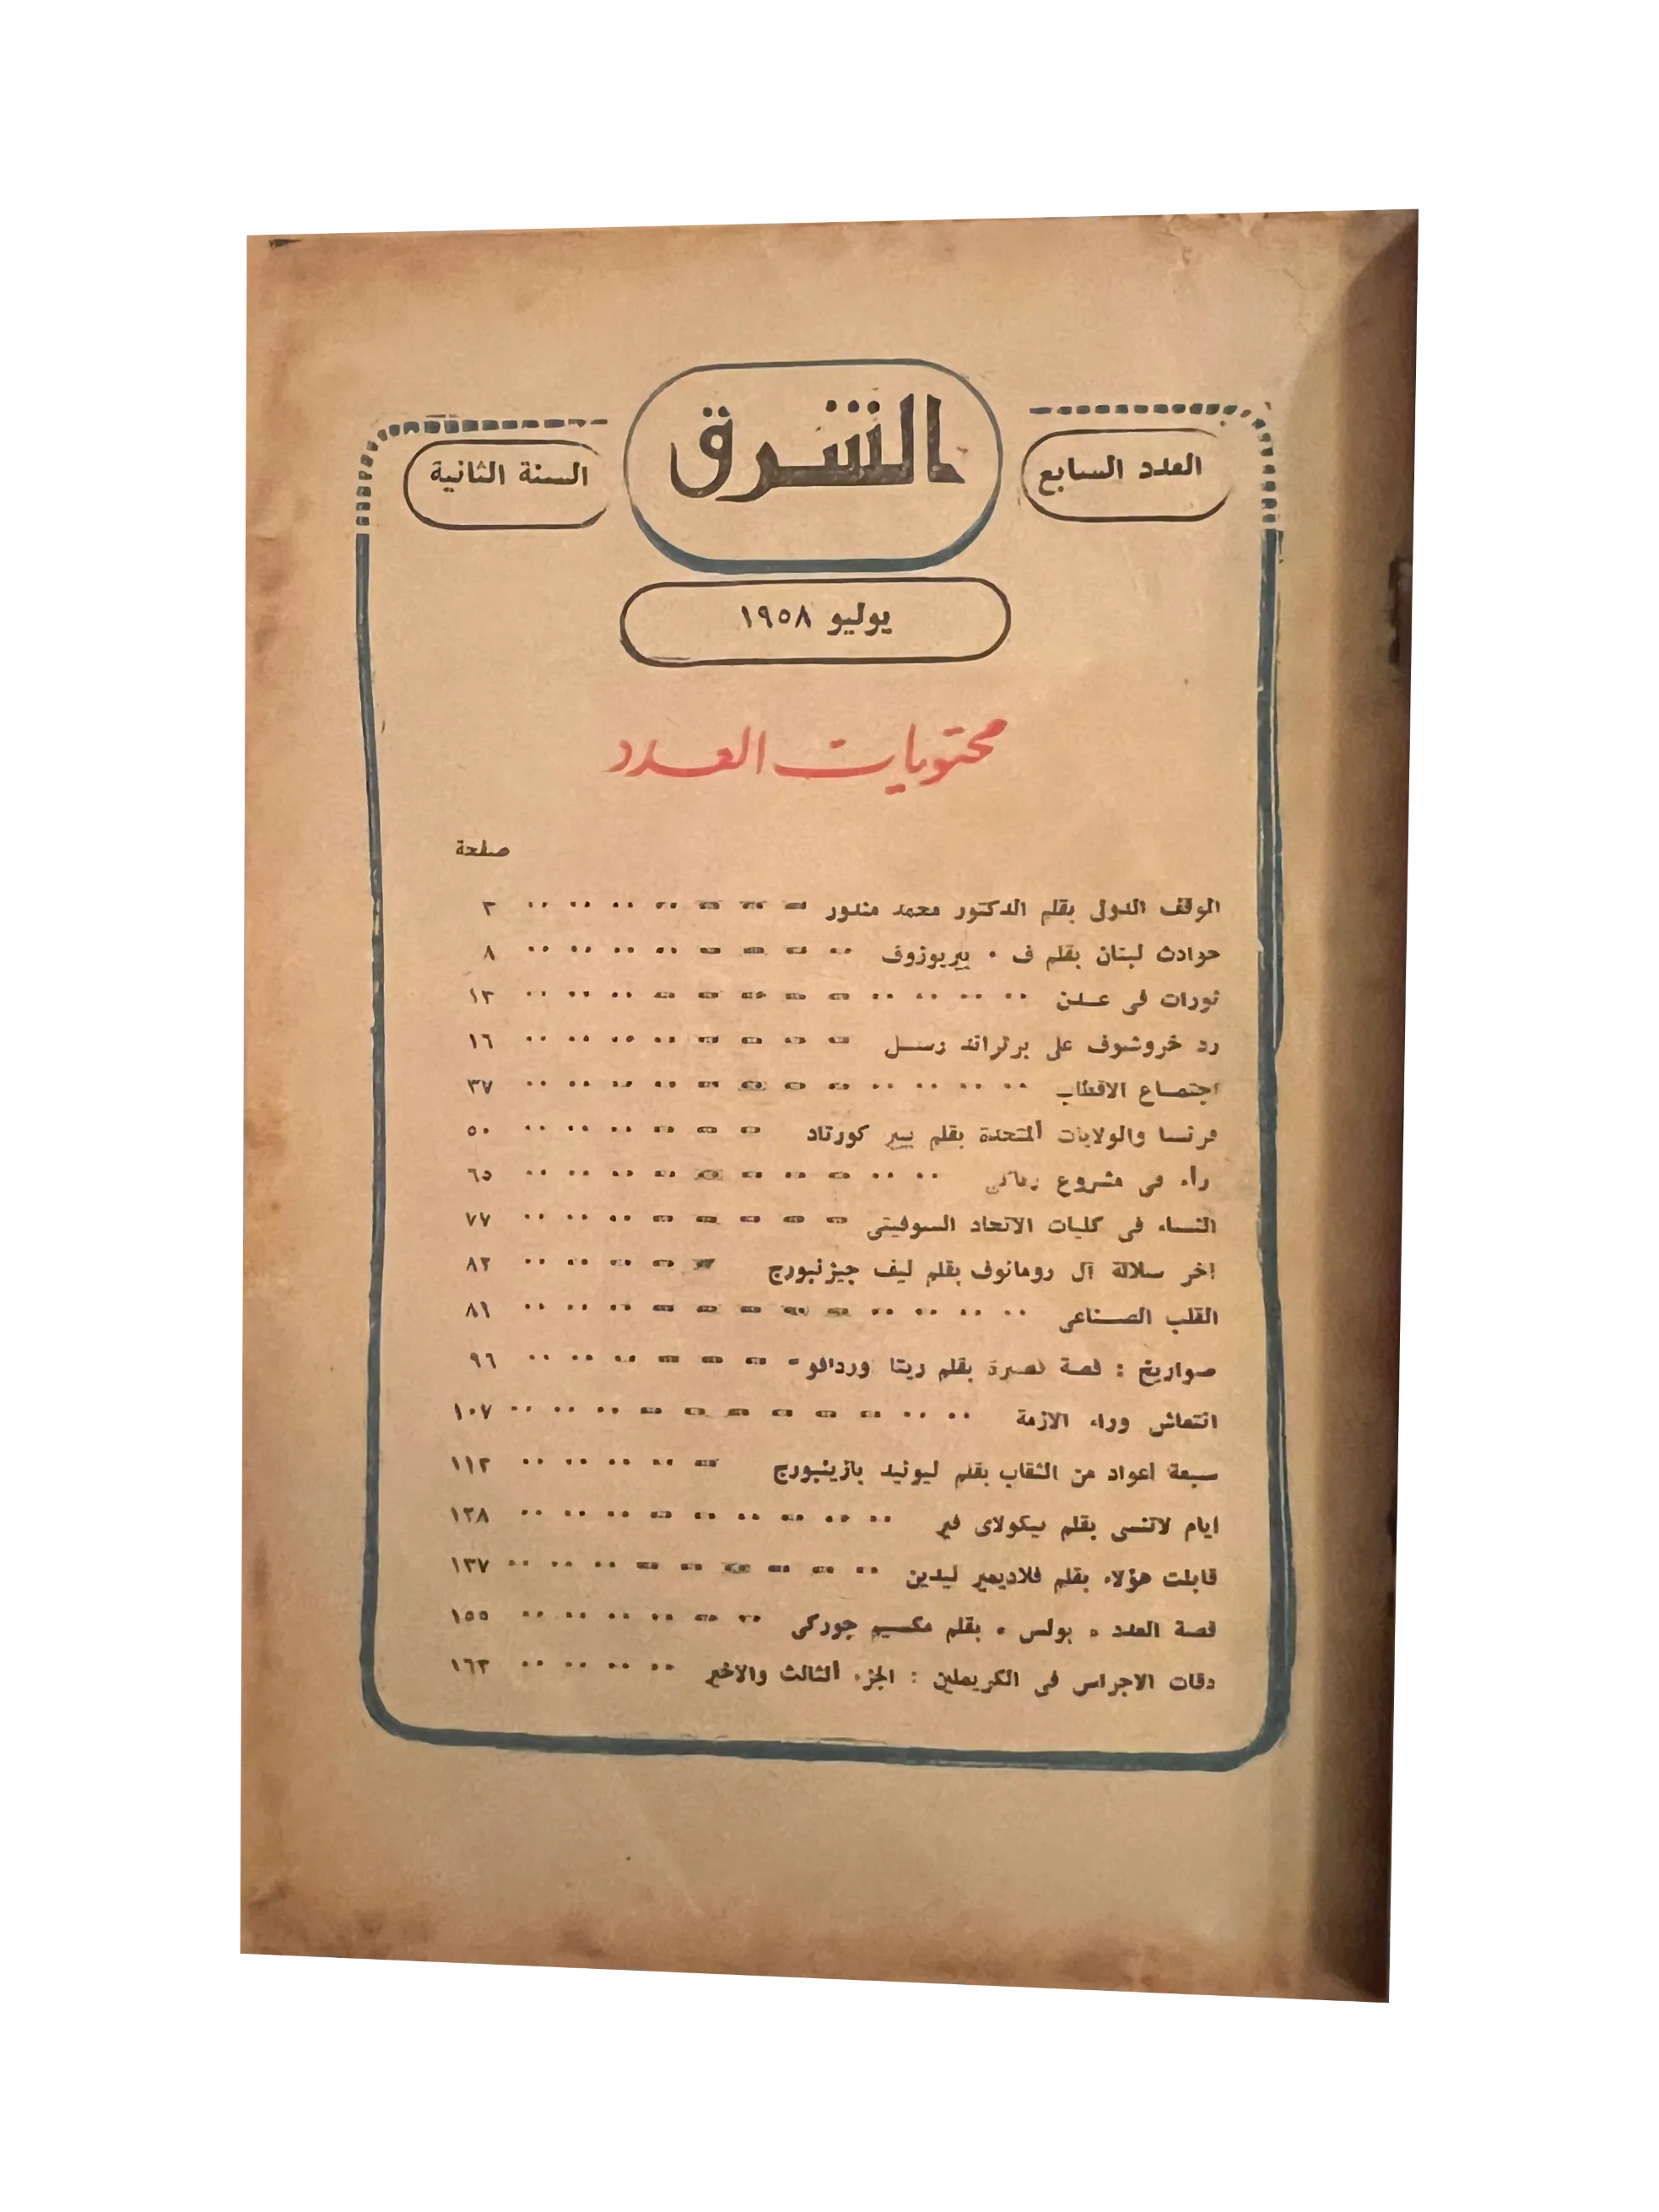 العدد السابع
الشرق
السنة الثانية
يوليو ١٩٥٨
محتويات العدد
صفحة
الموقف الدولى بقلم الدكتور محمد مندور ٣
حوادث لبنان بقلم ف . بيريوزوف ٨
ثورات فى عدن ١٣
رد خروشوف على برتراند رسل ١٦
اجتماع الاقطاب ٣٧
فرنسا والولايات المتحدة بقلم بيير كورتاد ٥٠
فى مشروع ٦٥
النساء فى كليات الاتحاد السوفيتى ٧٧
اخر سلالة آل رومانوف بقلم ليف جيزنبورج ٨٢
القلب الصناعى ٨٦
صواريخ : قصة قصيرة بقلم ريتا ٩٦
انتعاش وراء الازمة ١٠٧
سبعة اعواد من الثقاب بقلم ليونيد بازينبورج ١١٢
ايام لاتنسى بقلم نيكولاى فير ١٢٨
قابلت هؤلاء بقلم فلاديمير ليدين ١٣٧
قصة العدد « بولس » بقلم مكسيم جوركى ١٥٥
دقات الاجراس فى الكريملين : الجزء الثالث والاخير ١٦٣